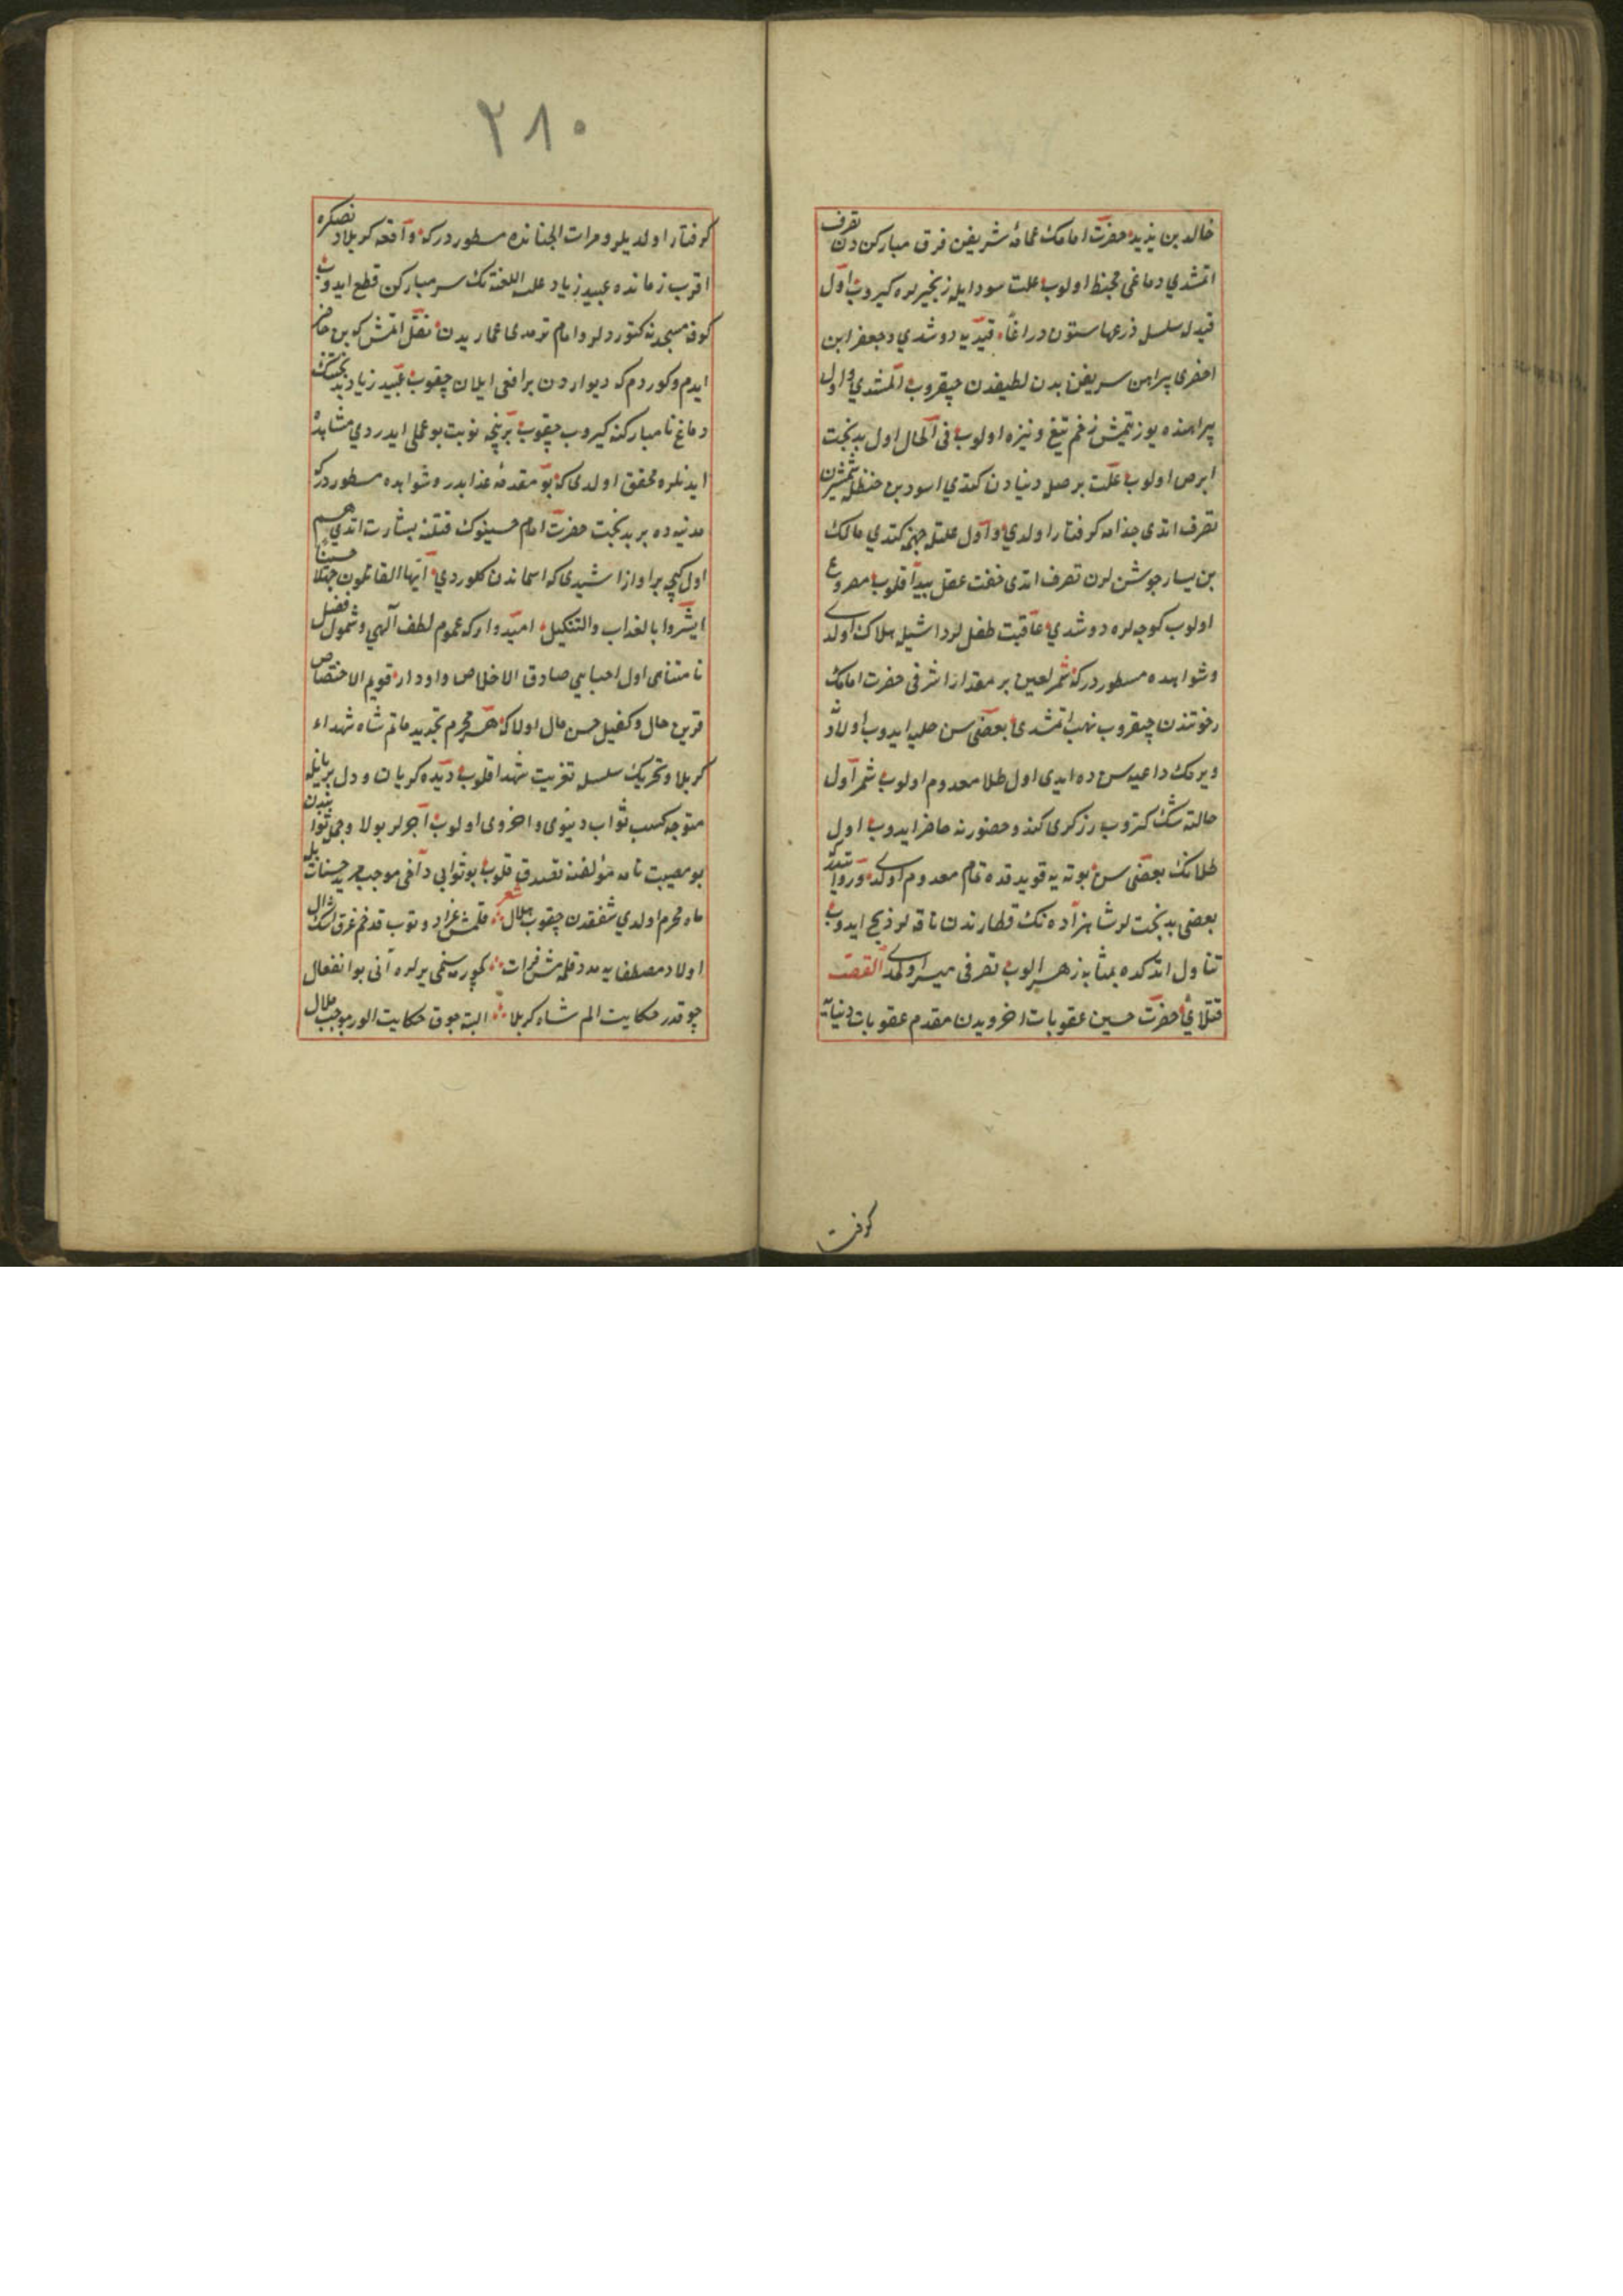 خالد بن یزید حضرت امامك عمامۀ شریفن فرق مبارکن دن تصرف
اتمشدي دماغی مخبط اولوب علت سودایله زنجیرلره کیروب اول
قیدله سلسل ذرعها ستون دراعاً قیدیه دوشدي و جعفر ابن
احضری پیراهن شریفن بدن لطیفدن چیقروب المشدي و اول
پیراهنده یوز یتمیش زخم تیغ و نیزه اولوب فی الحال اول بدبخت
ابرص اولوب علت برصله دنیادن کتدي اسود بن حنظله شمشیرن
تصرف اتدی جذامه کرفتار اولدي و اول علتله جهنمه کتدي مالك
بن یسار جوشن لرن تصرف اتدی خفت عقل پیدا قلوب مصروع
اولوب کوچه لره دوشدي عاقبت طفللر داشیله هلاك اولدی
و شواهده مسطوردرکه شمر لعین بر مقدار اشرفی حضرت امامك
رختندن چیقروب نهب اتمشدی بعضی سن حلیه ایدوب اولاد
ویرمك داعیه سنده ایدی اول طلا معدوم اولوب شمر اول
حالته شك کتروب زرکری کندو حضورنه حاضر ایدوب اول
طلانك بعضی سن بوته یه قویدقده تمام معدوم اولدی و روایتدر
بعضی بدبخت لر شاهزاده نك قطارندن ناقه لر ذبح ایدوب
تناول اتدکده بمثابه زهر الوب تصرفی میسر اولمدی القصه
قتلای حضرت حسین عقوبات اخرویدن مقدم عقوبات دنیایه
کرفتـ
۲۸۰
کرفتار اولدیلر و مرات الجنانده مسطوردرکه واقعه کربلادنصکره
اقرب زمانده عبید زیاد علیه اللعنة نك سر مبارکن قطع ایدوب
کوفه مسجدنه کتوردلر و امام ترمدی عماریدن نقل اتمش که بن حاضر
ایدم و کوردم که دیواردن بر افعی ایلان چقوب عبید زیاد بدبختك
دماغ نامبارکنه کیروب چقوب برنیچه نوبت بو عملی ایدردي مشاهده
ایدنلره محقق اولدی که بو مقدمۀ عذابدر و شواهده مسطوردرکه
مدینه ده بر بدبخت حضرت امام حسینوك قتلنه بشارت اتدي هم
اول کیجه بر اواز اشیدی که اسماندن کلوردي ایها القاتلون جهلا حسیناً
ابشروا بالعذاب والتنکیل امیدوارکه عموم لطف الهي و شمول فضل
نامتناهی اول احبای صادق الاخلاص و اودار قویم الاختصاص
قرین حال و کفیل حسن مال اولاکه هر محرم تجدید ماتم شاه شهداء
کربلا و تحریك سلسله تعزیت شهدا قلوب دیده کریان و دل بریانله
متوجه کسب ثواب دنیوی و اخروی اولوب اجرلر بولا و جمع ثوابندن
بو مصیبت نامه مؤلفنه تصدق قلوب بو ثوابی داخی موجب مزید حسنات بله
شعر
ماه محرم اولدي شفقدن چقوب هلال قلمش عزا دوتوب قدخم غرق اشك ال
اولاد مصطفایه مدد قلمه مش فرات کچورمش یرلره آنی بو انفعال
چوقدر حکایت الم شاه کربلا البته چوق حکایت الور موجب ملال